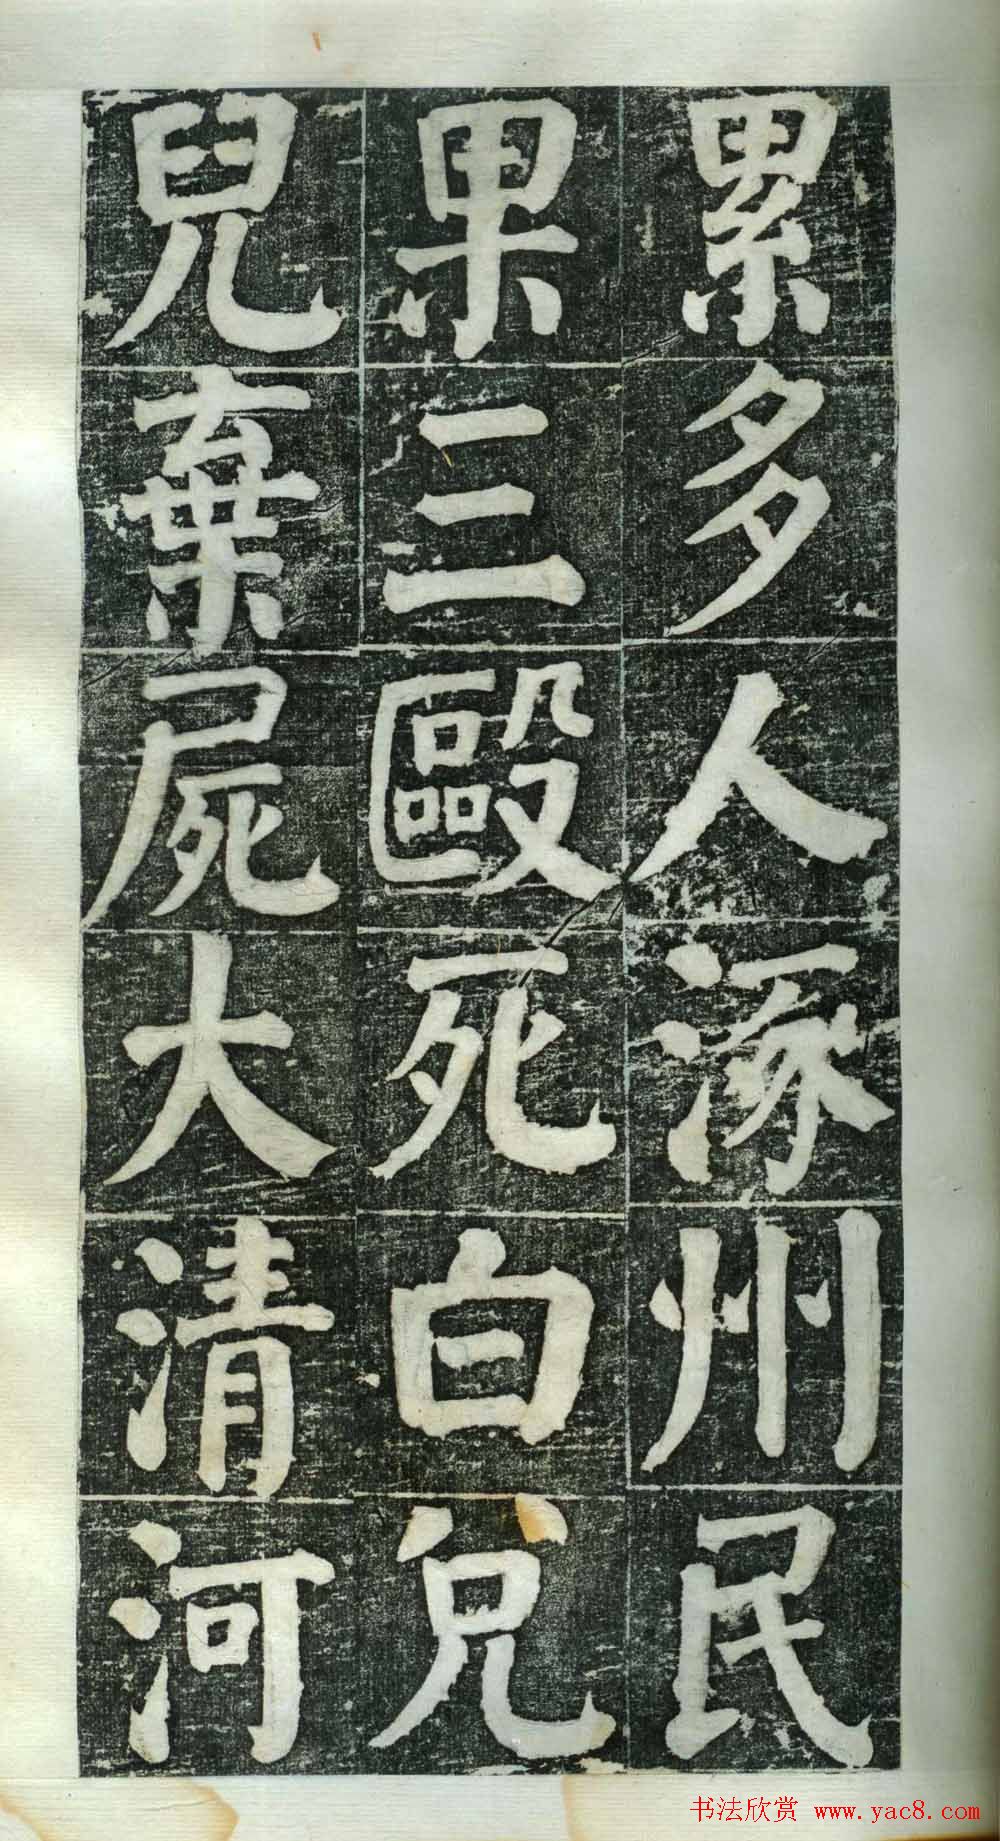 累多人涿州民
果三毆死白兑
兒棄屍大清河
书法欣赏 www.yac8.com